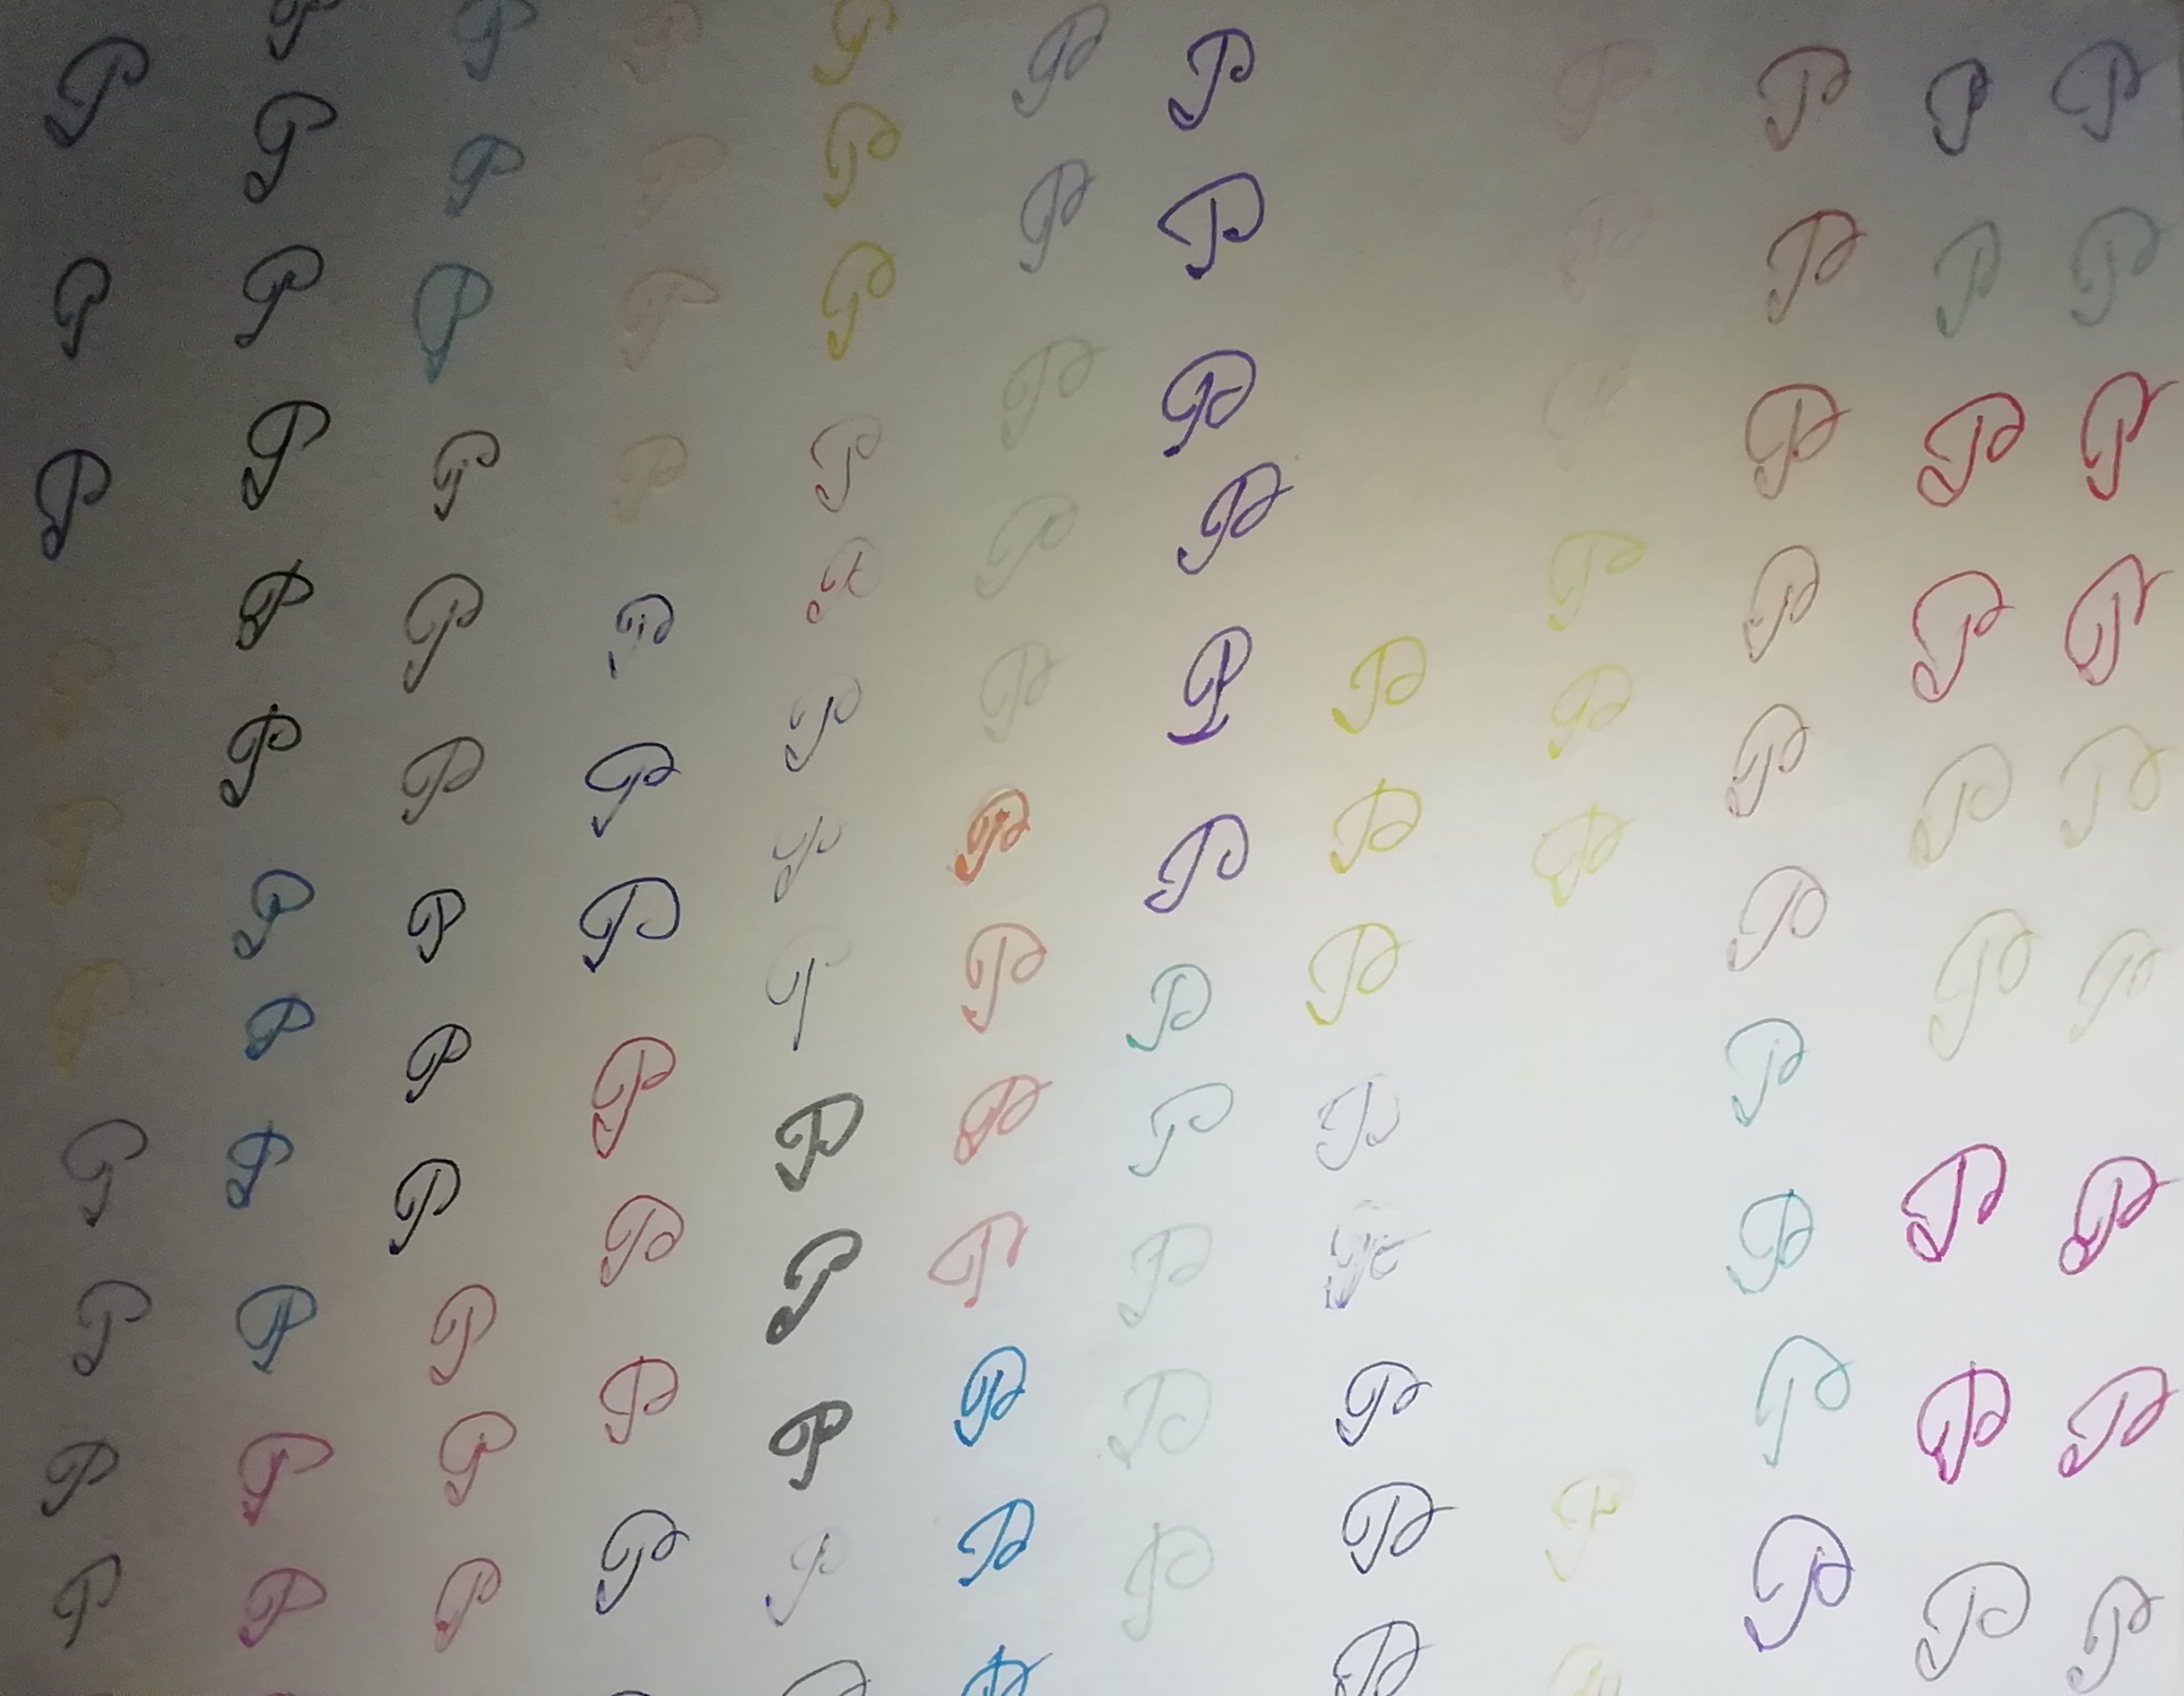 P P P P P P P P P P P
P P P P P P P P P P P
P P P P P P P P P P P
P P P P P P P P P P P
P P P P P P P P P P P P
P P P P P P P P P P P P
P P P P P P P P P P P
P P P P P P P P P P P
P P P P P P P P P P P
P P P P P P P P P P
P P P P P P P P
P P P P P